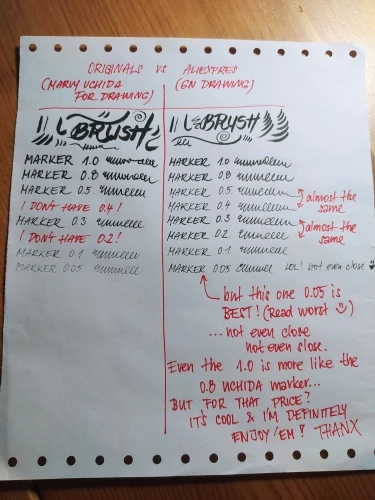 ORIGINALS VS ALIEXPRES
(MARVY UCHIDA (GN DRAWING)
FOR DRAWING)
BRUSH
MARKER 1.0
MARKER 0.8
MARKER 0.5
I DON'T HAVE 0.4!
MARKER 0.3
I DON'T HAVE 0.2!
MARKER 0.1
MARKER 0.05
BRUSH
MARKER 1.0
MARKER 0.8
MARKER 0.5
MARKER 0.4
almost the
same
MARKER 0.3
MARKER 0.2
almost the
same
MARKER 0.1
MARKER 0.05 LOL! not even close
but this one 0.05 is
BEST! (Read worst)
...not even close
not even close.
Even the 1.0 is more like the
0.8 UCHIDA marker...
BUT FOR THAT PRICE?
IT'S COOL & I'M DEFINITELY
ENJOY 'EM! THANX